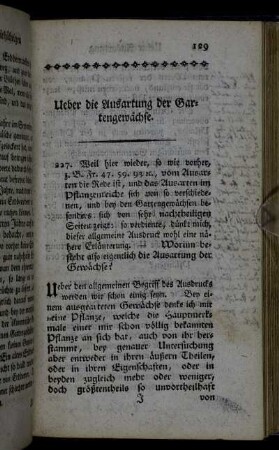 129
Ueber die Ausartung der Gar-
tengewächse.
227. Weil hier wieder, so wie vorher,
z. B. Fr. 47. 59. 95 u., vom Ausar-
ten die Rede ist, und das Ausarten im
Pflanzenreiche sich von so verschiede-
nen, und bey den Gartengewächsen be-
sonders sich von sehr nachtheiligen
Seiten zeigt: so verdiente, dünkt mich,
dieser allgemeine Ausdruck wohl eine nä-
here Erläuterung. — Worinn be-
steht also eigentlich die Ausartung der
Gewächse?
Ueber den allgemeinen Begriff des Ausdrucks
werden wir schon einig seyn. Bey
einem ausgearteten Gewächse denke ich mir
eine Pflanze, welche die Hauptmerk-
male einer mir schon völlig bekannten
Pflanze an sich hat, auch von ihr her-
stammt, bey genauer Untersuchung
aber entweder in ihren äußern Theilen,
oder in ihren Eigenschaften, oder in
beyden zugleich mehr oder weniger,
doch größtentheils so unvortheilhaft
J von